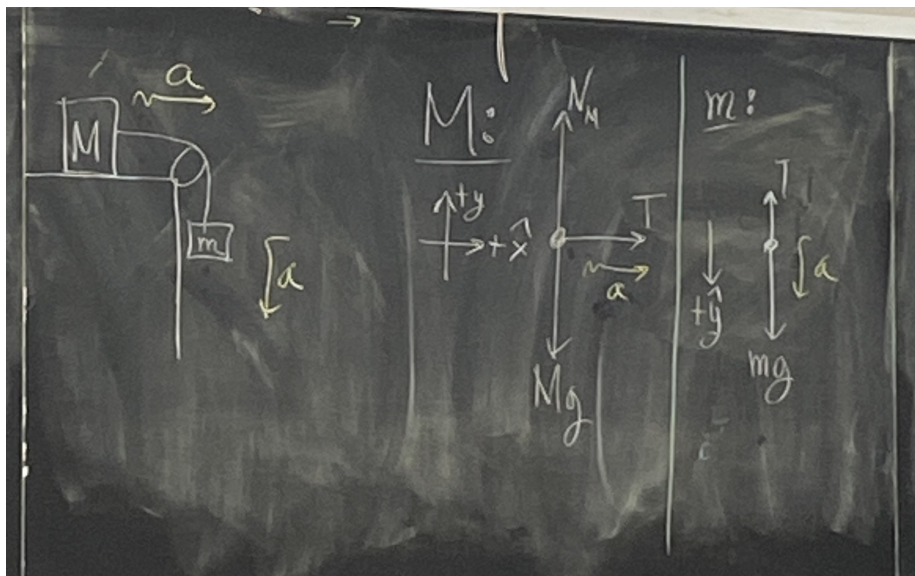 a
M
m
a
M:
N_M
+y
+x̂
T
a
Mg
m:
T
a
+ŷ
mg